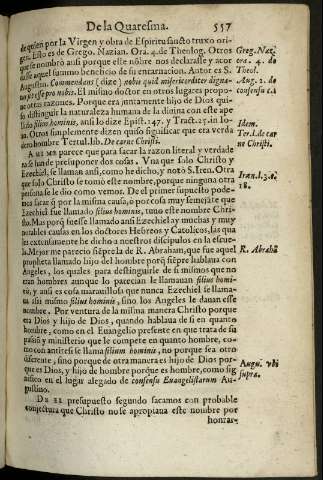 De la Quaresma. 557
de quien por la Virgen y obra de Espiritu sancto truxo ori-
gen. Esto es de Grego. Nazian. Ora. 4. de Theolog. Otros
que se nombrò ansi porque este nõbre nos declarasse y acor
dasse aquel summo beneficio de su encarnacion. Autor es S.
Augustin. Commendans (dize) nobis quid misericorditer digna-
tus sit esse pro nobis. El mismo doctor en otros lugares propo-
ne otras razones. Porque era juntamente hijo de Dios qui-
so distinguir la naturaleza humana de la divina con este ape
llido filius hominis, ansi lo dize Epist. 147. y Tract. 27. in Io-
an. Otros simplemente dizen quiso significar que era verda
dero hombre Tertul. lib. De carne Christi.
A mi me parece que para sacar la razon literal y verdade
ra se han de presuponer dos cosas. Vna que solo Christo y
Ezechiel, se llaman ansi, como he dicho, y notò S. Iren. Otra
que solo Christo se tomò este nombre, porque ninguna otra
persona se le dio como vemos. De el primer supuesto pode-
mos sacar que por la misma causa, ò por cosa muy semejate que
Ezechiel fue llamado filius hominis, tuuo este nombre Chri-
sto. Mas porque fuesse llamado ansi Ezechiel ay muchas y muy
notables causas en los doctores Hebreos y Catolicos, las que
les extensamente he dicho a nuestros discipulos en la escue-
la. Mejor me parecio siẽpre la de R. Abraham, que fue aquel
propheta llamado hijo del hombre porque siẽpre hablaua con
Angeles, los quales para destinguirle de si mismos que no
eran hombres aunque lo parecian le llamauan filius homi-
nis, y ansi es cosa marauillosa que nunca Ezechiel se llama-
ua assi mismo filius hominis, sino los Angeles le dauan esse
nombre. Por ventura de la misma manera Christo porque
era Dios y hijo de Dios, quando hablaua de si en quanto
hombre, como en el Euangelio presente en que trata de su
passiõ y ministerio que le compete en quanto hombre, co-
mo con antitesis se llama filium hominis, no porque sea otro
diferente, sino porque de otra manera es hijo de Dios por-
que es Dios, y hijo de hombre porque es hombre, como sig
nifico en el lugar alegado de consensu Euangelistarum Au-
gustino.
De el presupuesto segundo sacamos con probable
conjectura que Christo no se apropiaua este nombre por
honrar-
Greg. Naz.
ora. 4. de
Theol.
Aug. 2. de
consensu c. 1
Idem.
Ter. l. de car
ne Christi.
Iren. l. 3. c.
18.
R. Abrahã
Augu. vbi
supra.